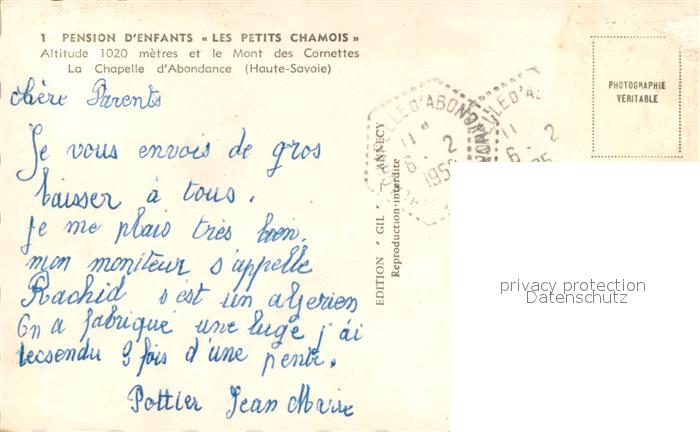 1 PENSION D'ENFANTS « LES PETITS CHAMOIS »
Altitude 1020 mètres et le Mont des Cornettes
La Chapelle d'Abondance (Haute-Savoie)
chère Parents
Je vous envois de gros
baisser à tous.
je me plais très bien.
mon moniteur s'appelle
Rachid s'est un algerien
On a fabriqué une luge j'ai
decsendu 3 fois d'une pente.
Pottier Jean Marie
EDITION " GIL " ANNECY
Reproduction interdite
PHOTOGRAPHIE
VERITABLE
ELLE D'ABOND
11
6 - 2
195
ELLE D'A
11
6 - 2
privacy protection
Datenschutz